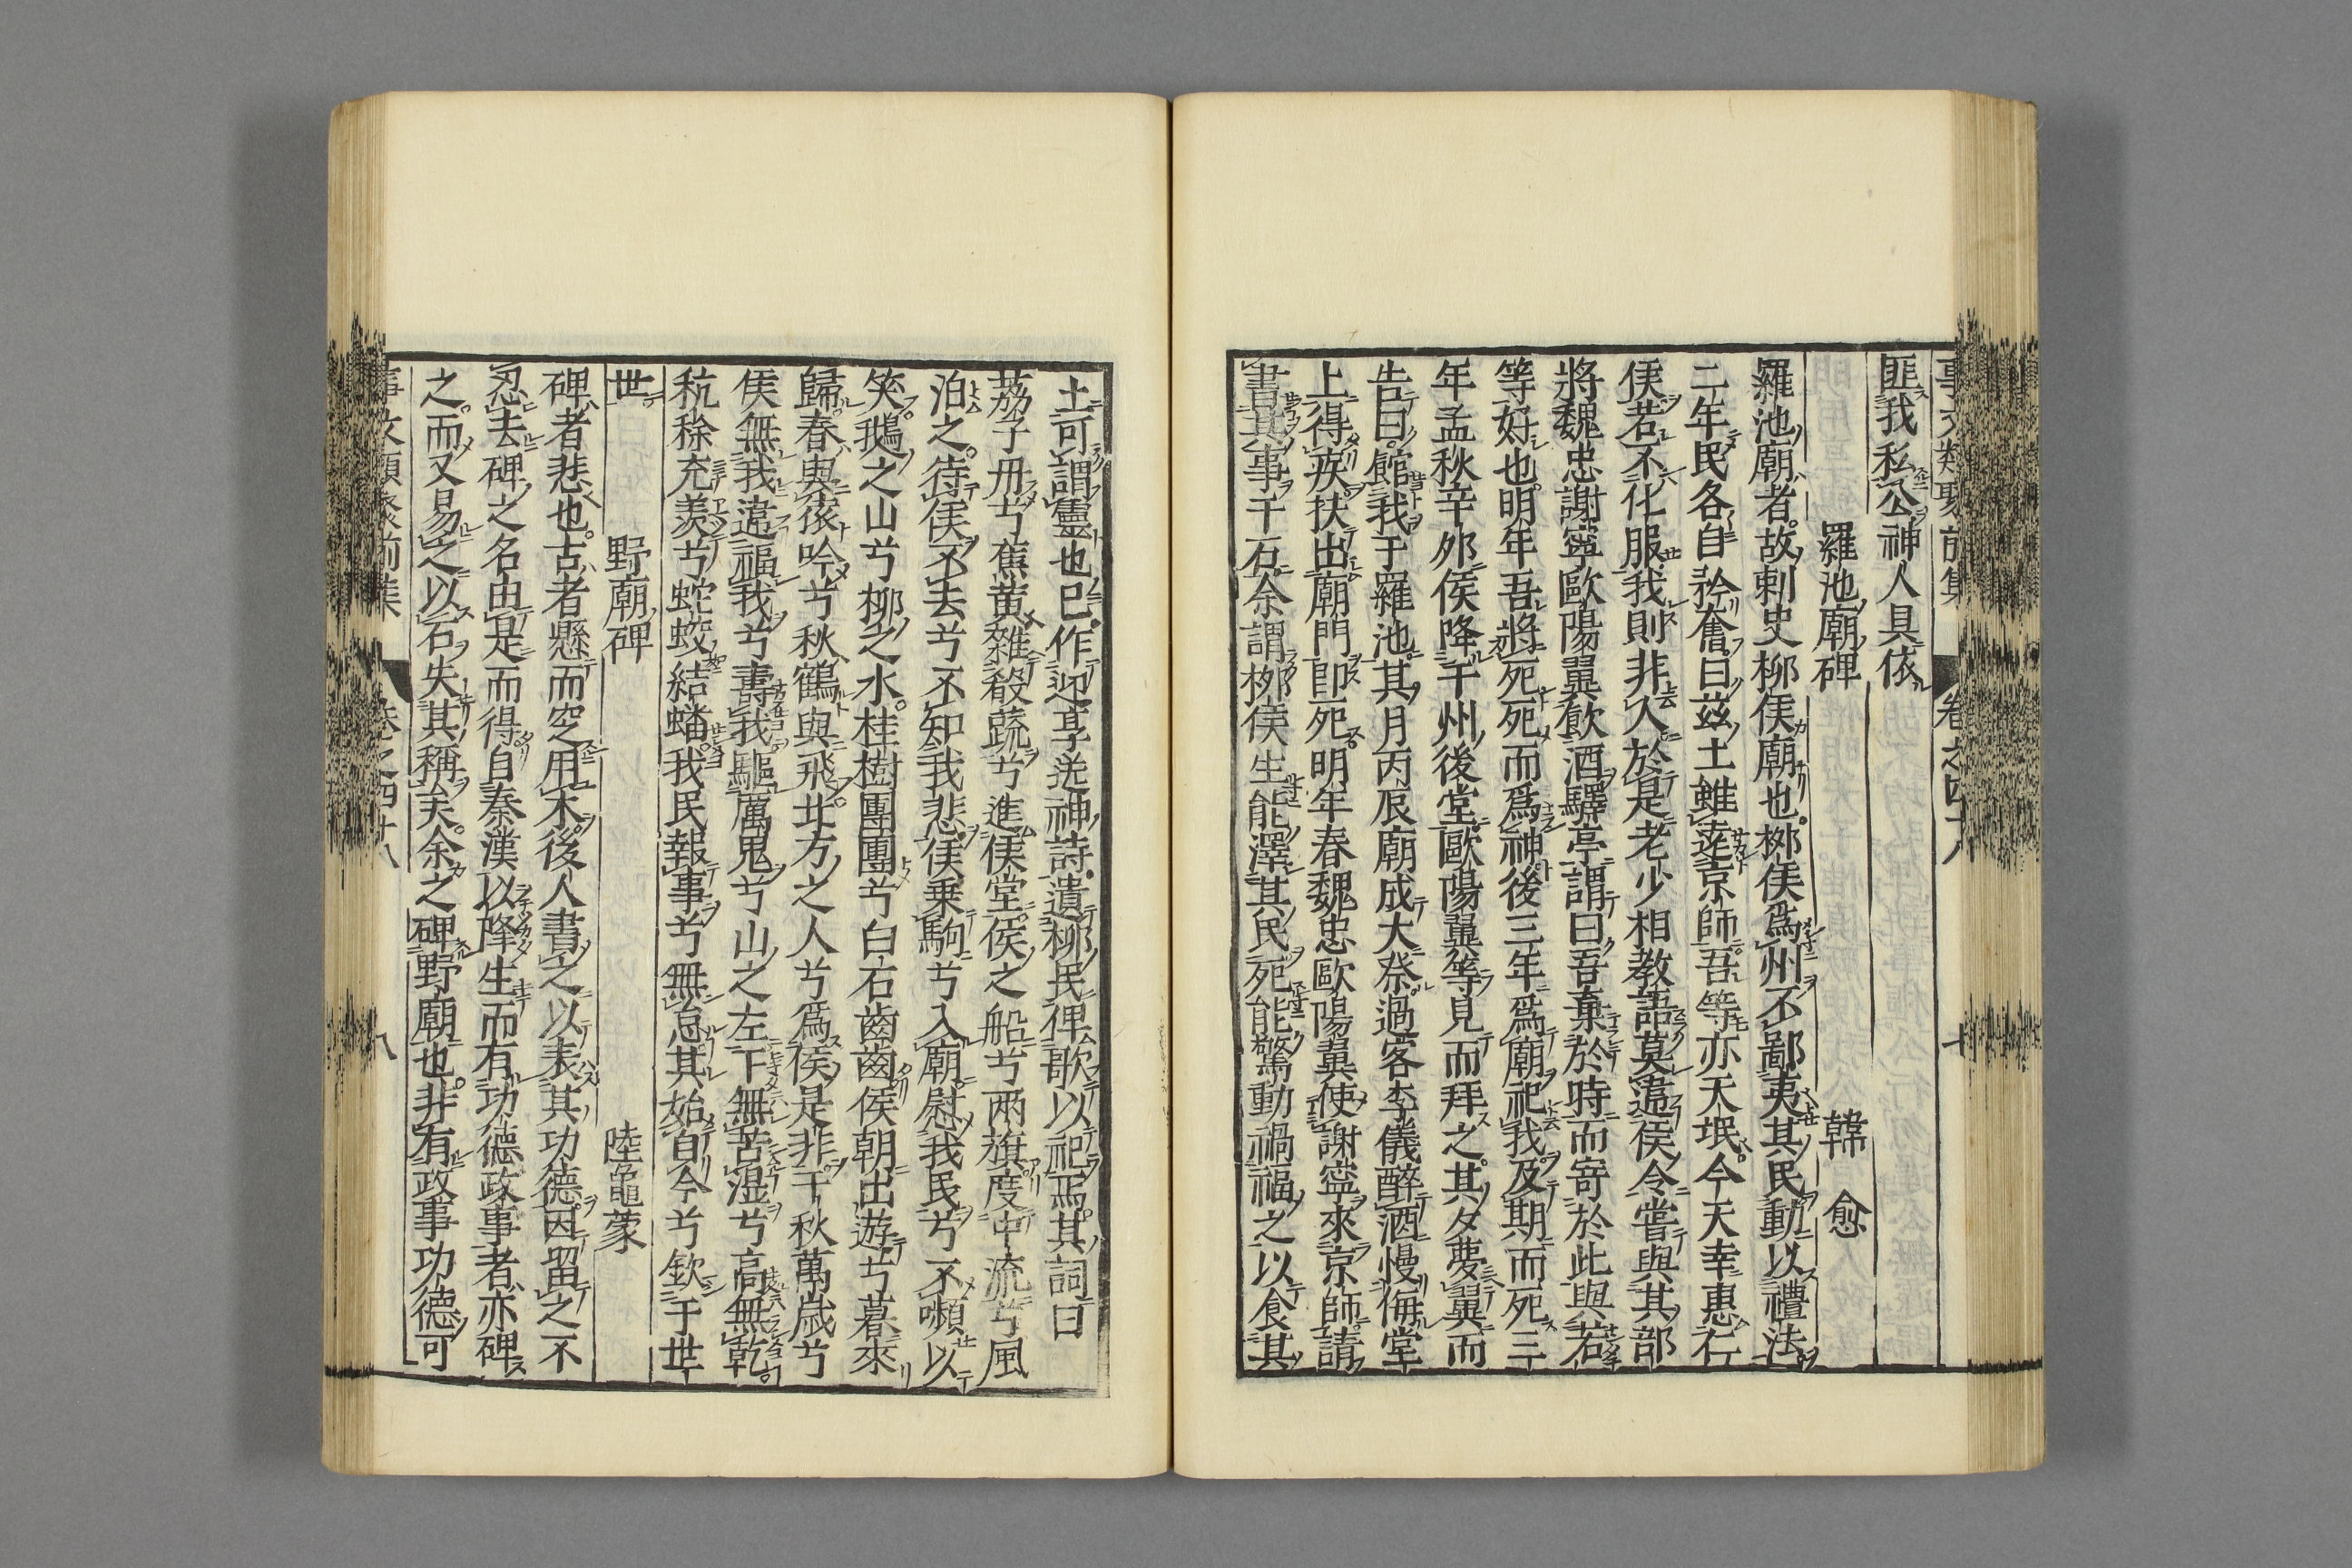 事文類聚前集 卷之四十八 七
匪我私公神人具依
羅池廟碑 韓愈
羅池廟者故刺史柳侯廟也柳侯爲州不鄙夷其民動以禮法
二年民各自矜奮曰茲土雖遠京師吾等亦天氓今天幸惠仁
侯若不化服我則非人於是老少相教語莫違侯令嘗與其部
將魏忠謝寧歐陽翼飲酒驛亭謂曰吾棄於時而寄於此與若
等好也明年吾將死死而爲神後三年爲廟祀我及期而死三
年孟秋辛卯侯降于州後堂歐陽翼等見而拜之其夕夢翼而
告曰館我于羅池其月丙辰廟成大祭過客李儀醉酒慢侮堂
上得疾扶出廟門卽死明年春魏忠歐陽翼使謝寧來京師請
書其事于石余謂柳侯生能澤其民死能驚動禍福之以食其
土可謂靈也已作迎享送神詩遺柳民俾歌以祀焉其詞曰
荔子丹兮蕉黃雜殽蔬兮進侯堂侯之船兮兩旗度中流兮風
泊之待侯不去兮不知我悲侯乘駒兮入廟慰我民兮不嚬以
笑鵝之山兮柳之水桂樹團團兮白石齒齒侯朝出遊兮暮來
歸春與猿吟兮秋鶴與飛北方之人兮爲侯是非千秋萬歲兮
侯無我違福我兮壽我驅厲鬼兮山之左下無苦湿兮高無乾
秔稌充羨兮蛇蛟結蟠我民報事兮無怠其始自今兮欽于世
世 野廟碑 陸龜蒙
碑者悲也古者懸而窆用木後人書之以表其功德因留之不
忍去碑之名由是而得自秦漢以降生而有功德政事者亦碑
之而又易之以石失其稱矣余之碑野廟也非有政事功德可
事文類聚前集 卷之四十八 八